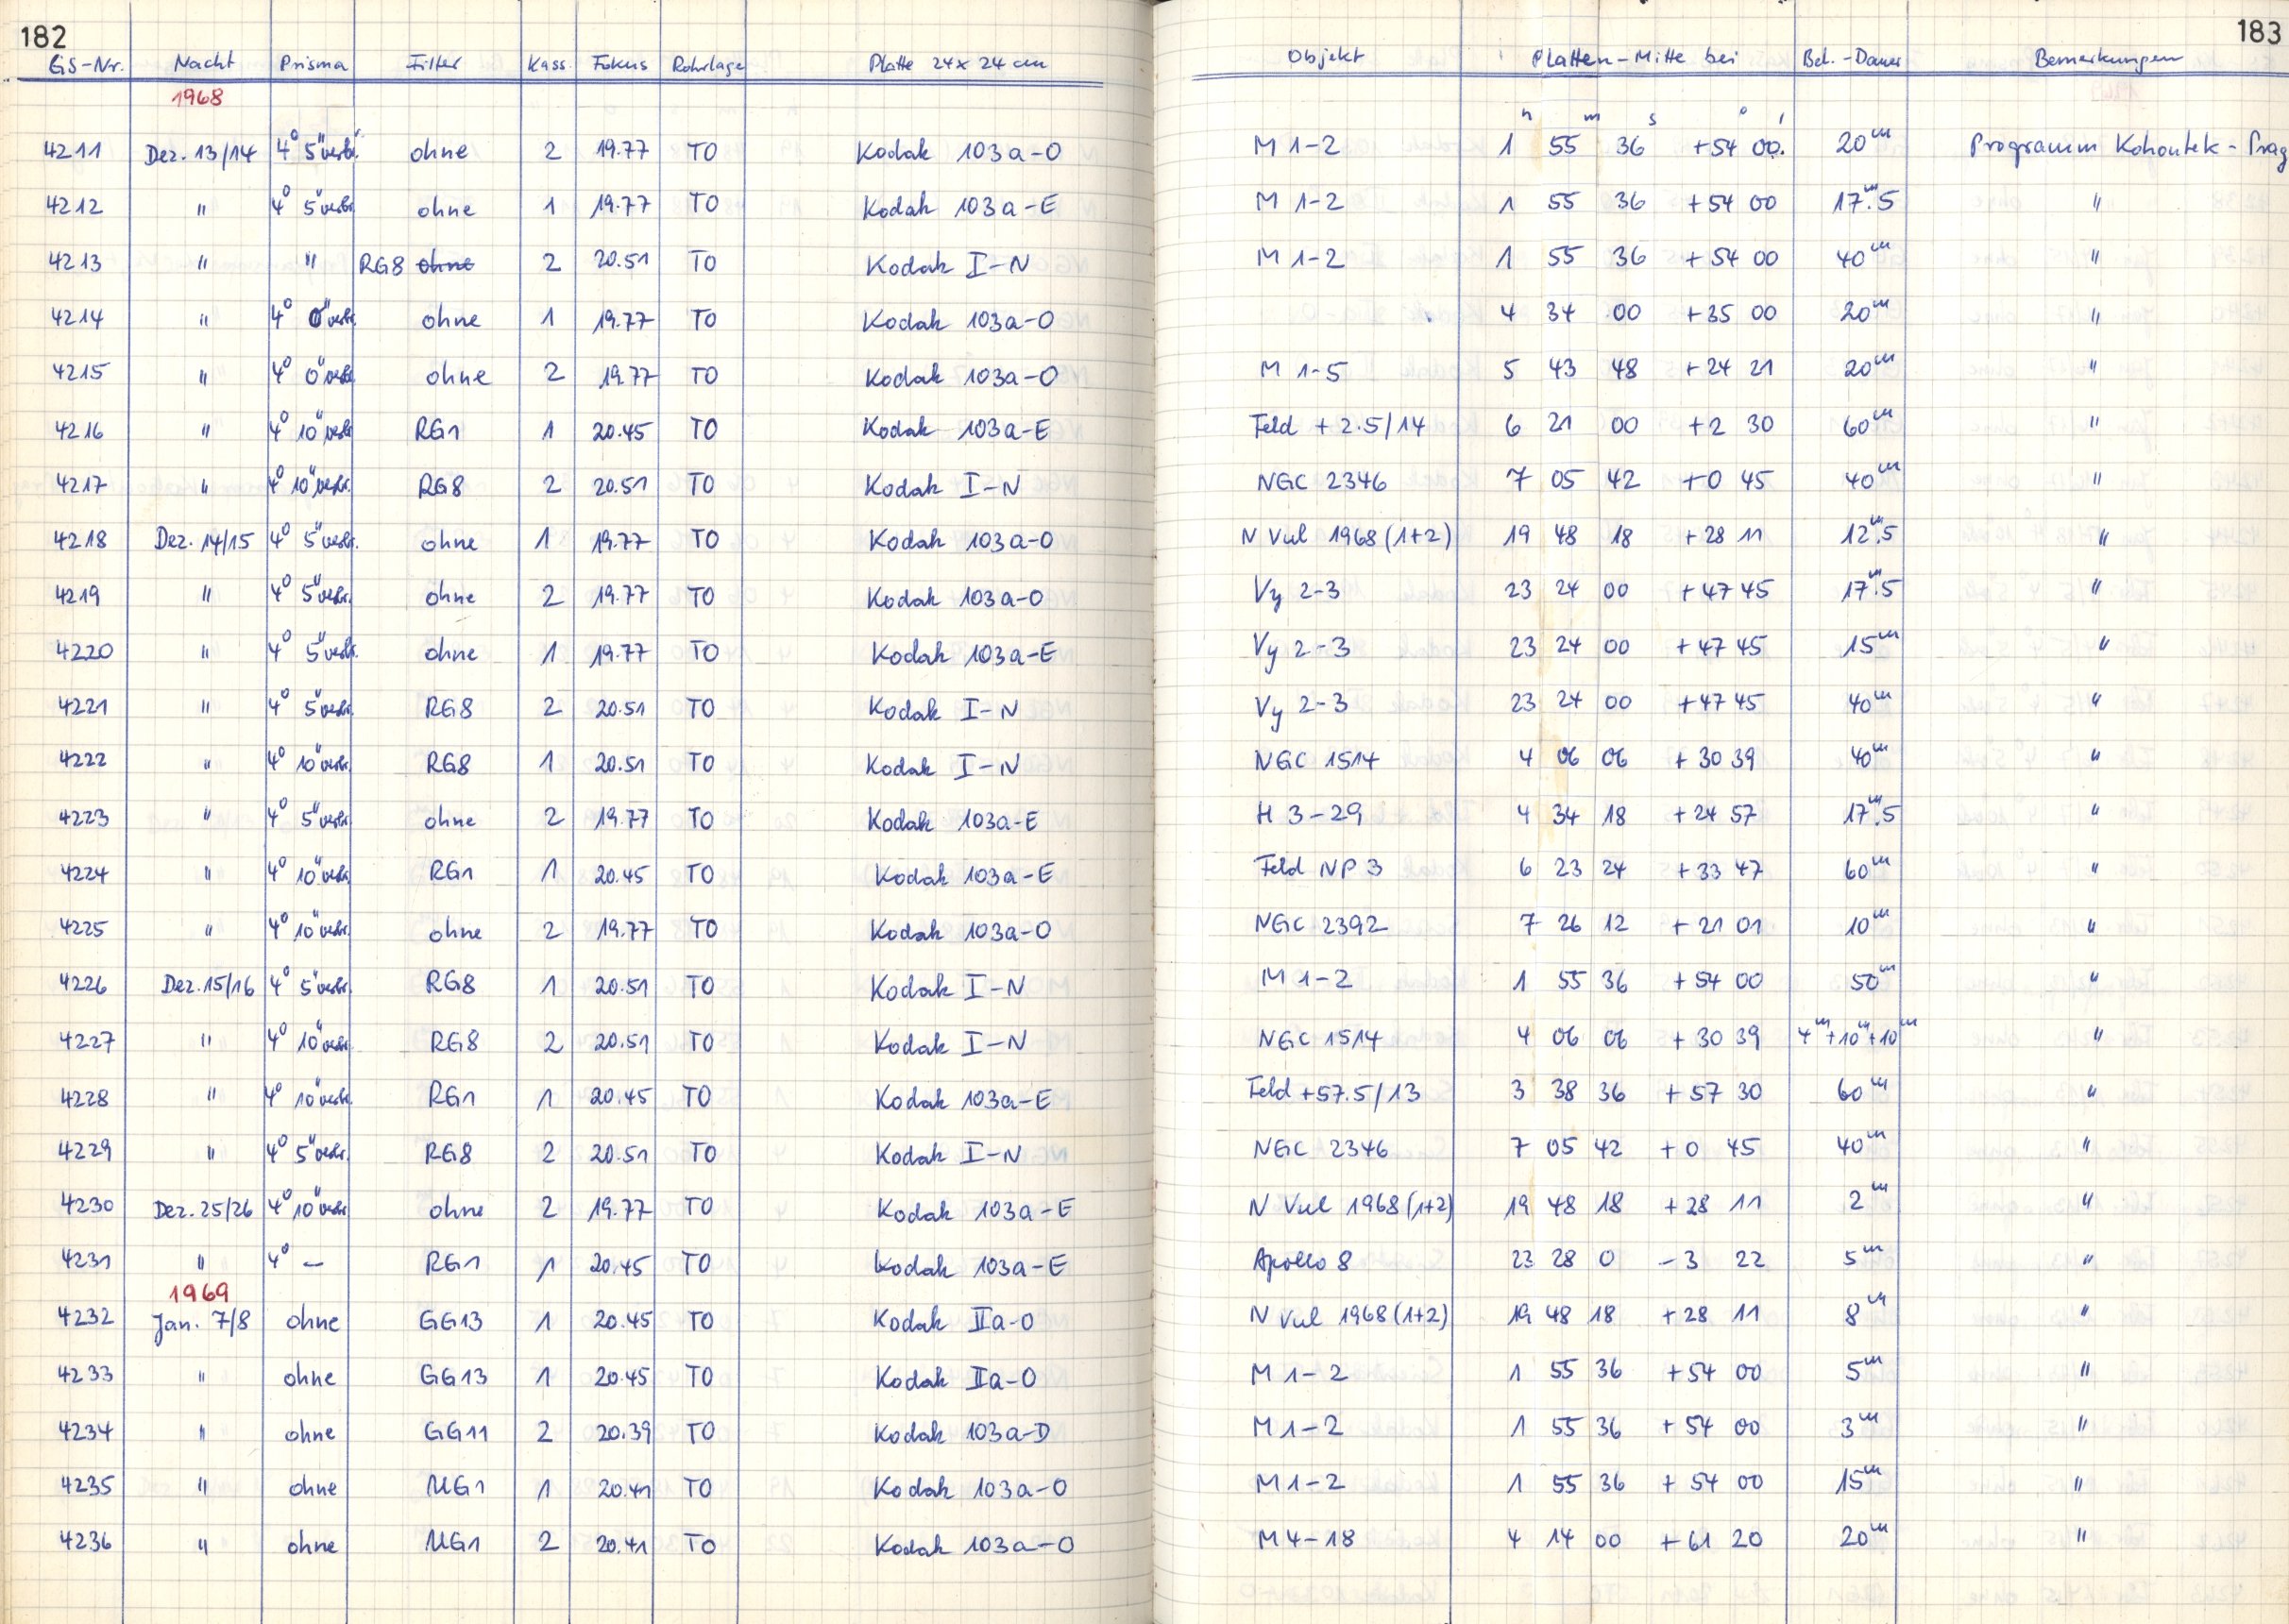 182
GS-Nr. Nacht Prisma Filter Kass. Fokus Rohrlage Platte 24x24 cm Objekt Platten-Mitte bei Bel.-Dauer Bemerkungen
183
1968
h m s ° '
4211 Dez. 13/14 4° 5" verbr. ohne 2 19.77 TO Kodak 103a-O M 1-2 1 55 36 +54 00. 20m Programm Kohoutek-Prag
4212 " 4° 5" verbr. ohne 1 19.77 TO Kodak 103a-E M 1-2 1 55 36 +54 00 17m.5 "
4213 " " RG8 ohne 2 20.51 TO Kodak I-N M 1-2 1 55 36 +54 00 40m "
4214 " 4° 0" verbr. ohne 1 19.77 TO Kodak 103a-O 4 34 00 +35 00 20m "
4215 " 4° 0" verbr. ohne 2 19.77 TO Kodak 103a-O M 1-5 5 43 48 +24 21 20m "
4216 " 4° 10" verbr. RG1 1 20.45 TO Kodak 103a-E Feld +2.5/14 6 21 00 +2 30 60m "
4217 " 4° 10" verbr. RG8 2 20.51 TO Kodak I-N NGC 2346 7 05 42 +0 45 40m "
4218 Dez. 14/15 4° 5" verbr. ohne 1 19.77 TO Kodak 103a-O N Vul 1968 (1+2) 19 48 18 +28 11 12m.5 "
4219 " 4° 5" verbr. ohne 2 19.77 TO Kodak 103a-O Vy 2-3 23 24 00 +47 45 17m.5 "
4220 " 4° 5" verbr. ohne 1 19.77 TO Kodak 103a-E Vy 2-3 23 24 00 +47 45 15m "
4221 " 4° 5" verbr. RG8 2 20.51 TO Kodak I-N Vy 2-3 23 24 00 +47 45 40m "
4222 " 4° 10" verbr. RG8 1 20.51 TO Kodak I-N NGC 1514 4 06 06 +30 39 40m "
4223 " 4° 5" verbr. ohne 2 19.77 TO Kodak 103a-E H 3-29 4 34 18 +24 57 17m.5 "
4224 " 4° 10" verbr. RG1 1 20.45 TO Kodak 103a-E Feld NP 3 6 23 24 +33 47 60m "
4225 " 4° 10" verbr. ohne 2 19.77 TO Kodak 103a-O NGC 2392 7 26 12 +21 01 10m "
4226 Dez. 15/16 4° 5" verbr. RG8 1 20.51 TO Kodak I-N M 1-2 1 55 36 +54 00 50m "
4227 " 4° 10" verbr. RG8 2 20.51 TO Kodak I-N NGC 1514 4 06 06 +30 39 4m+10m+10m "
4228 " 4° 10" verbr. RG1 1 20.45 TO Kodak 103a-E Feld +57.5/13 3 38 36 +57 30 60m "
4229 " 4° 5" verbr. RG8 2 20.51 TO Kodak I-N NGC 2346 7 05 42 +0 45 40m "
4230 Dez. 25/26 4° 10" verbr. ohne 2 19.77 TO Kodak 103a-E N Vul 1968 (1+2) 19 48 18 +28 11 2m "
4231 " 4° - RG1 1 20.45 TO Kodak 103a-E Apollo 8 23 28 0 -3 22 5m "
1969
4232 Jan. 7/8 ohne GG13 1 20.45 TO Kodak IIa-O N Vul 1968 (1+2) 19 48 18 +28 11 8m "
4233 " ohne GG13 1 20.45 TO Kodak IIa-O M 1-2 1 55 36 +54 00 5m "
4234 " ohne GG11 2 20.39 TO Kodak 103a-D M 1-2 1 55 36 +54 00 3m "
4235 " ohne UG1 1 20.41 TO Kodak 103a-O M 1-2 1 55 36 +54 00 15m "
4236 " ohne UG1 2 20.41 TO Kodak 103a-O M 4-18 4 14 00 +61 20 20m "